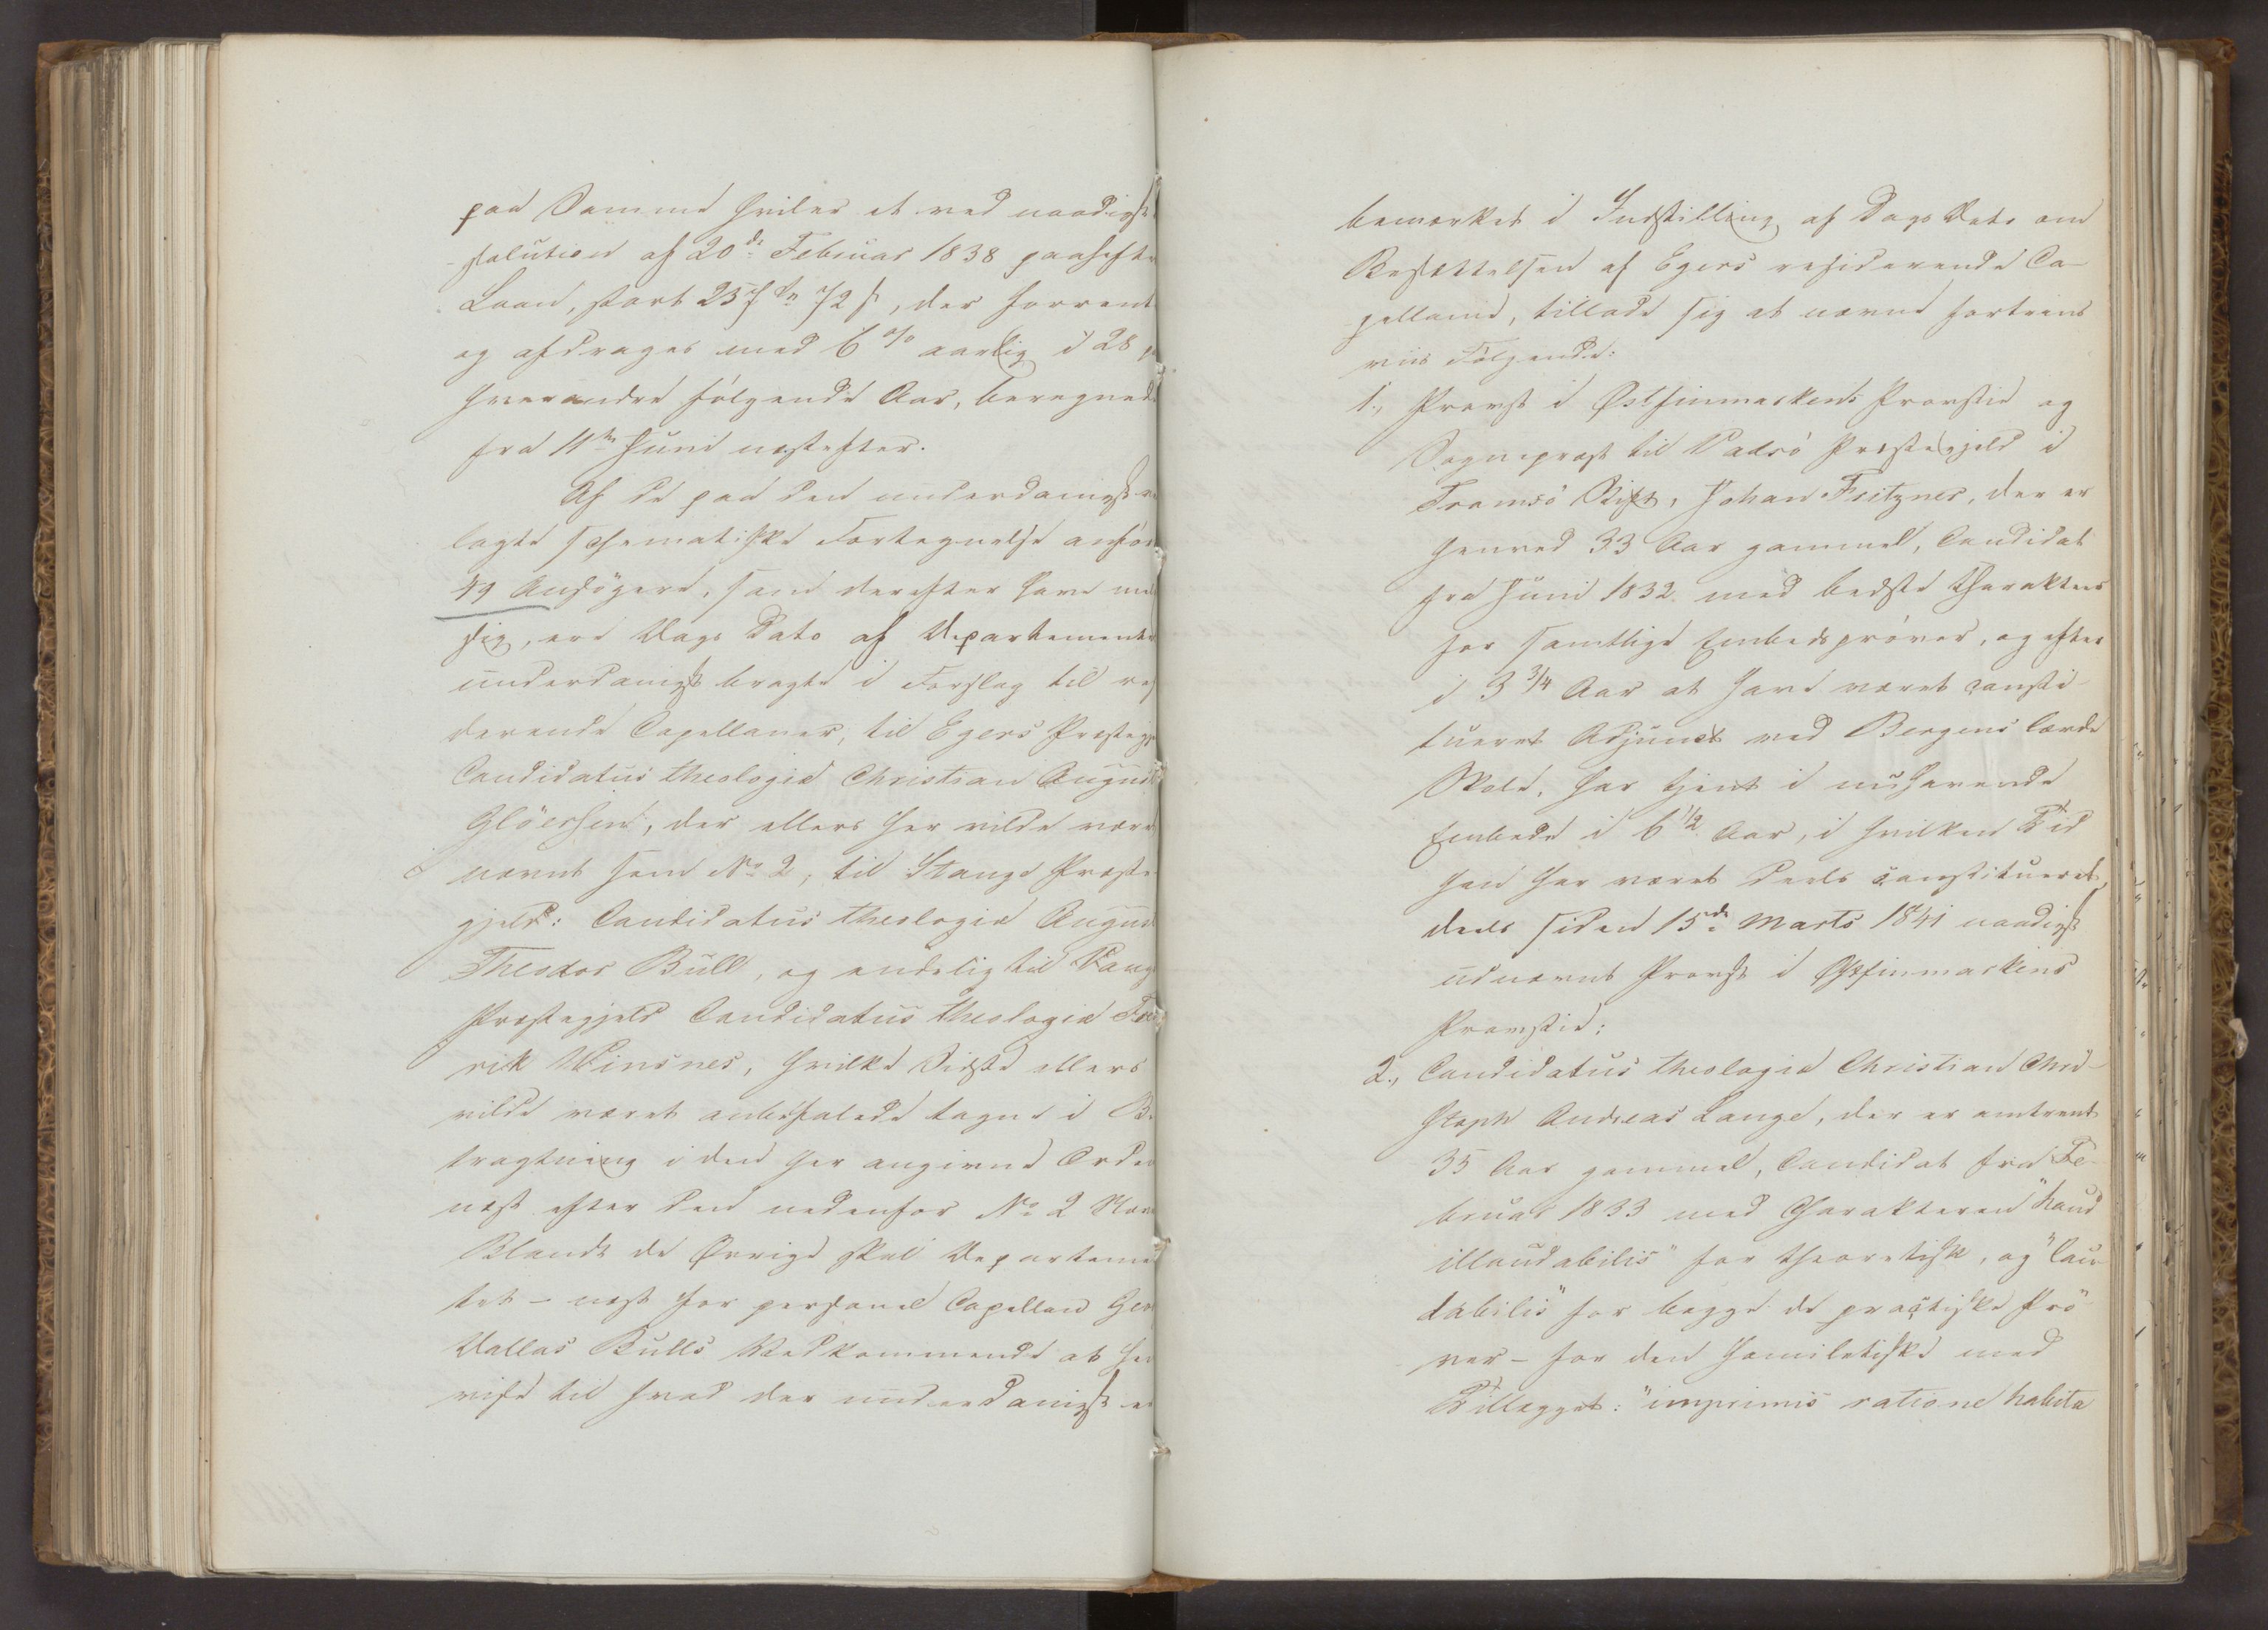 paa Samme hviler et ved naadigst
solution af 20de Februar 1838 paaheftet
Laan, stort 72 ß, der forrent
og afdrages med 6 % aarlig i 28 p
hverandre følgende Aar, beregnede
fra 11te Juni næstefter.
Af de paa den underdanigst
lagte schematiske Fortegnelse anfør
49 Ansøgere, som derefter have mel
sig, ere Dags Dato af Departementet
underdanigst bragte i Forslag til res
derende Capellaner, til Egers Præstegj
Candidatus theologiæ Christian August
Glöersen, der ellers her vilde være
nævnt som No 2, til Stange Præste-
gjeld: Candidatus theologiæ August
Theodor Bull, og endelig til Vang
Præstegjeld Candidatus theologiæ Fred
rik Winsnes, hvilke Sidste ellers
vilde været anbefalede tagne i Be
tragtning i den her angivne Orden
næst efter den nedenfor No 2 Næv
Blandt de Øvrige skal Departemen
tet – næst for personel Capellan Ger
Dallas Bulls Vedkommende at hen
vise til hvad der underdanigst er
bemærket i Indstilling af Dags Dato om
Besættelsen af Egers residerende Ca-
pellanie, tillade sig at nævne fortrins
viis Følgende:
1., Provst i Østfinmarkens Provstie og
Sognepræst til Vadsö Præstegjeld i
Tromsö Stift, Johan Fritzner, der er
henved 33 Aar gammel, Candidat
fra Juni 1832 med bedste Charakteer
for samtlige Embedsprøver, og efter
i 3 3/4 Aar at have været consti-
tueret Adjunct ved Bergens lærde
Skole, har tjent i nuhavende
Embede i 6 1/2 Aar, i hvilken Tid
han har været deels constitueret,
deels siden 15de Marts 1841 naadigst
udnævnt Provst i Østfinmarkens
Provstie;
2., Candidatus theologiæ Christian Chri-
stoph Andreas Lange, der er omtrent
35 Aar gammel, Candidat fra Fe-
bruar 1833 med Charakteren "haud
illaudabilis" for theoretisk, og "lau-
dabilis" for begge de practiske Prö
ver – for den homiletiske med
Tillægget: "imprimis ratione habita